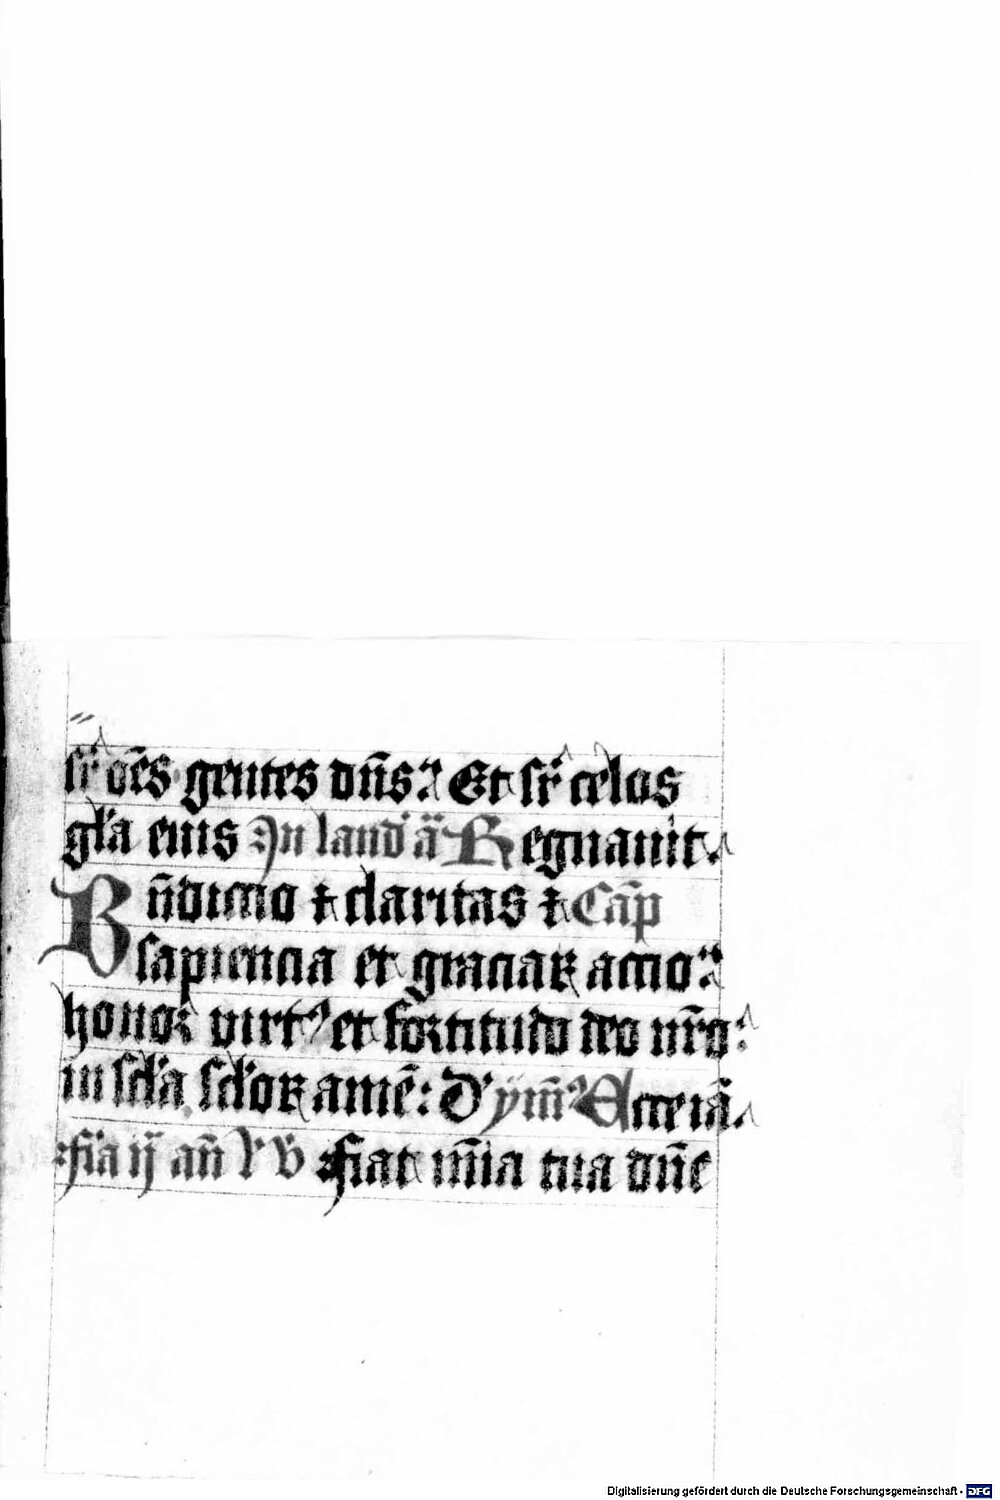 sr̄ oēs gentes dn̄s? Et sr̄ celos
gl̄a eius Jn laud ā Regnauit
Bn̄dictio ⁊ claritas ⁊ Cap̄
sapiencia et graciaꝝ actio?
honor virt⁹ et fortitudo deo nr̄o:
in scl̄a scl̄oꝝ amē: D' ym̄⁹ Acte iā
fīa ij an̄ V v̄ Fiat mīa tua dn̄e
Digitalisierung gefördert durch die Deutsche Forschungsgemeinschaft - DFG